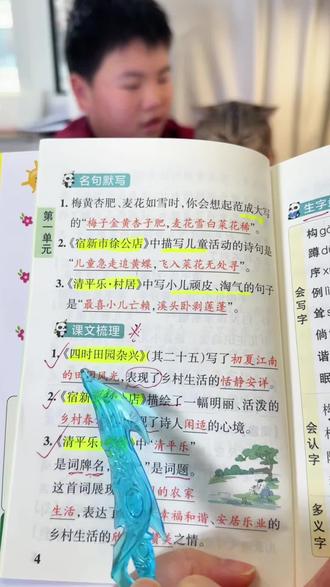 名句默写
1. 梅黄杏肥、麦花如雪时,你会想起范成大写
的“梅子金黄杏子肥,麦花雪白菜花稀”。
2.《宿新市徐公店》中描写儿童活动的诗句是
“儿童急走追黄蝶,飞入菜花无处寻”。
3.《清平乐·村居》中写小儿顽皮、淘气的句子
是“最喜小儿亡赖,溪头卧剥莲蓬”。
第一单元
课文梳理
1.《四时田园杂兴》(其二十五)写了初夏江南
的田园风光,表现了乡村生活的恬静安详。
2.《宿新 店》描绘了一幅明丽、活泼的
乡村春 现了诗人闲适的心境。
3.《清平乐 》中“清平乐”
是词牌名, ”是词题。
这首词展现 的农家
生活,表达了 幸福和谐、安居乐业的
乡村生活的 之情。
4
生字
会写字
构
蹲
序
例
耸
倘
谐
会认字
多义字